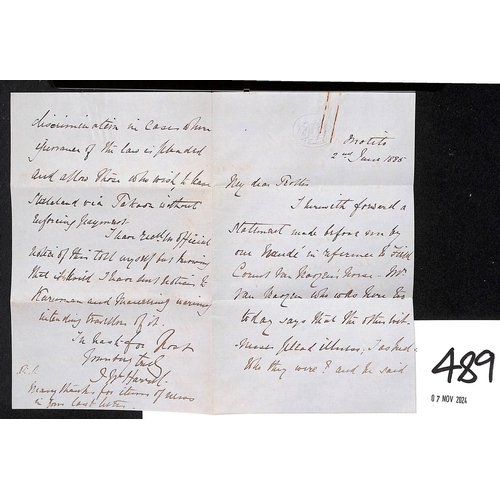 Motito
2nd June 1885
My dear Trotter
I herewith forward a
Statement made before me by
one in reference to Field
Cornet Van horse - Mr
Van who was here
today says that the other wit-
nesses I asked
who they were? and he said
discrimination in cases where
ignorance of the law is pleaded
and allow those who wish to leave
Stellaland via Takoon without
enforcing payment
I have no official
notice of this toll myself but knowing
that it exists I have sent notices to
Kuruman and warning
intending travellers of it.
In haste for Post
Yours truly
many thanks for items of news
in your last letter
489
07 NOV 2024